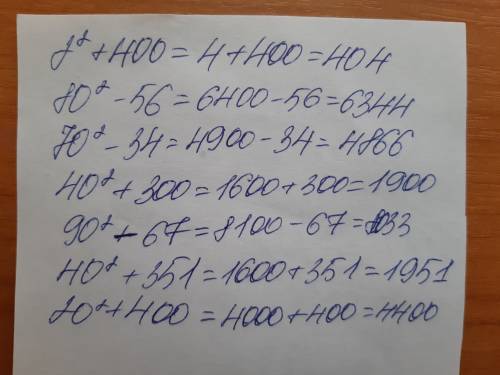 2² + 400 = 4 + 400 = 404
80² - 56 = 6400 - 56 = 6344
70² - 34 = 4900 - 34 = 4866
40² + 300 = 1600 + 300 = 1900
90² - 67 = 8100 - 67 = 8033
40² + 351 = 1600 + 351 = 1951
20² + 400 = 4000 + 400 = 4400